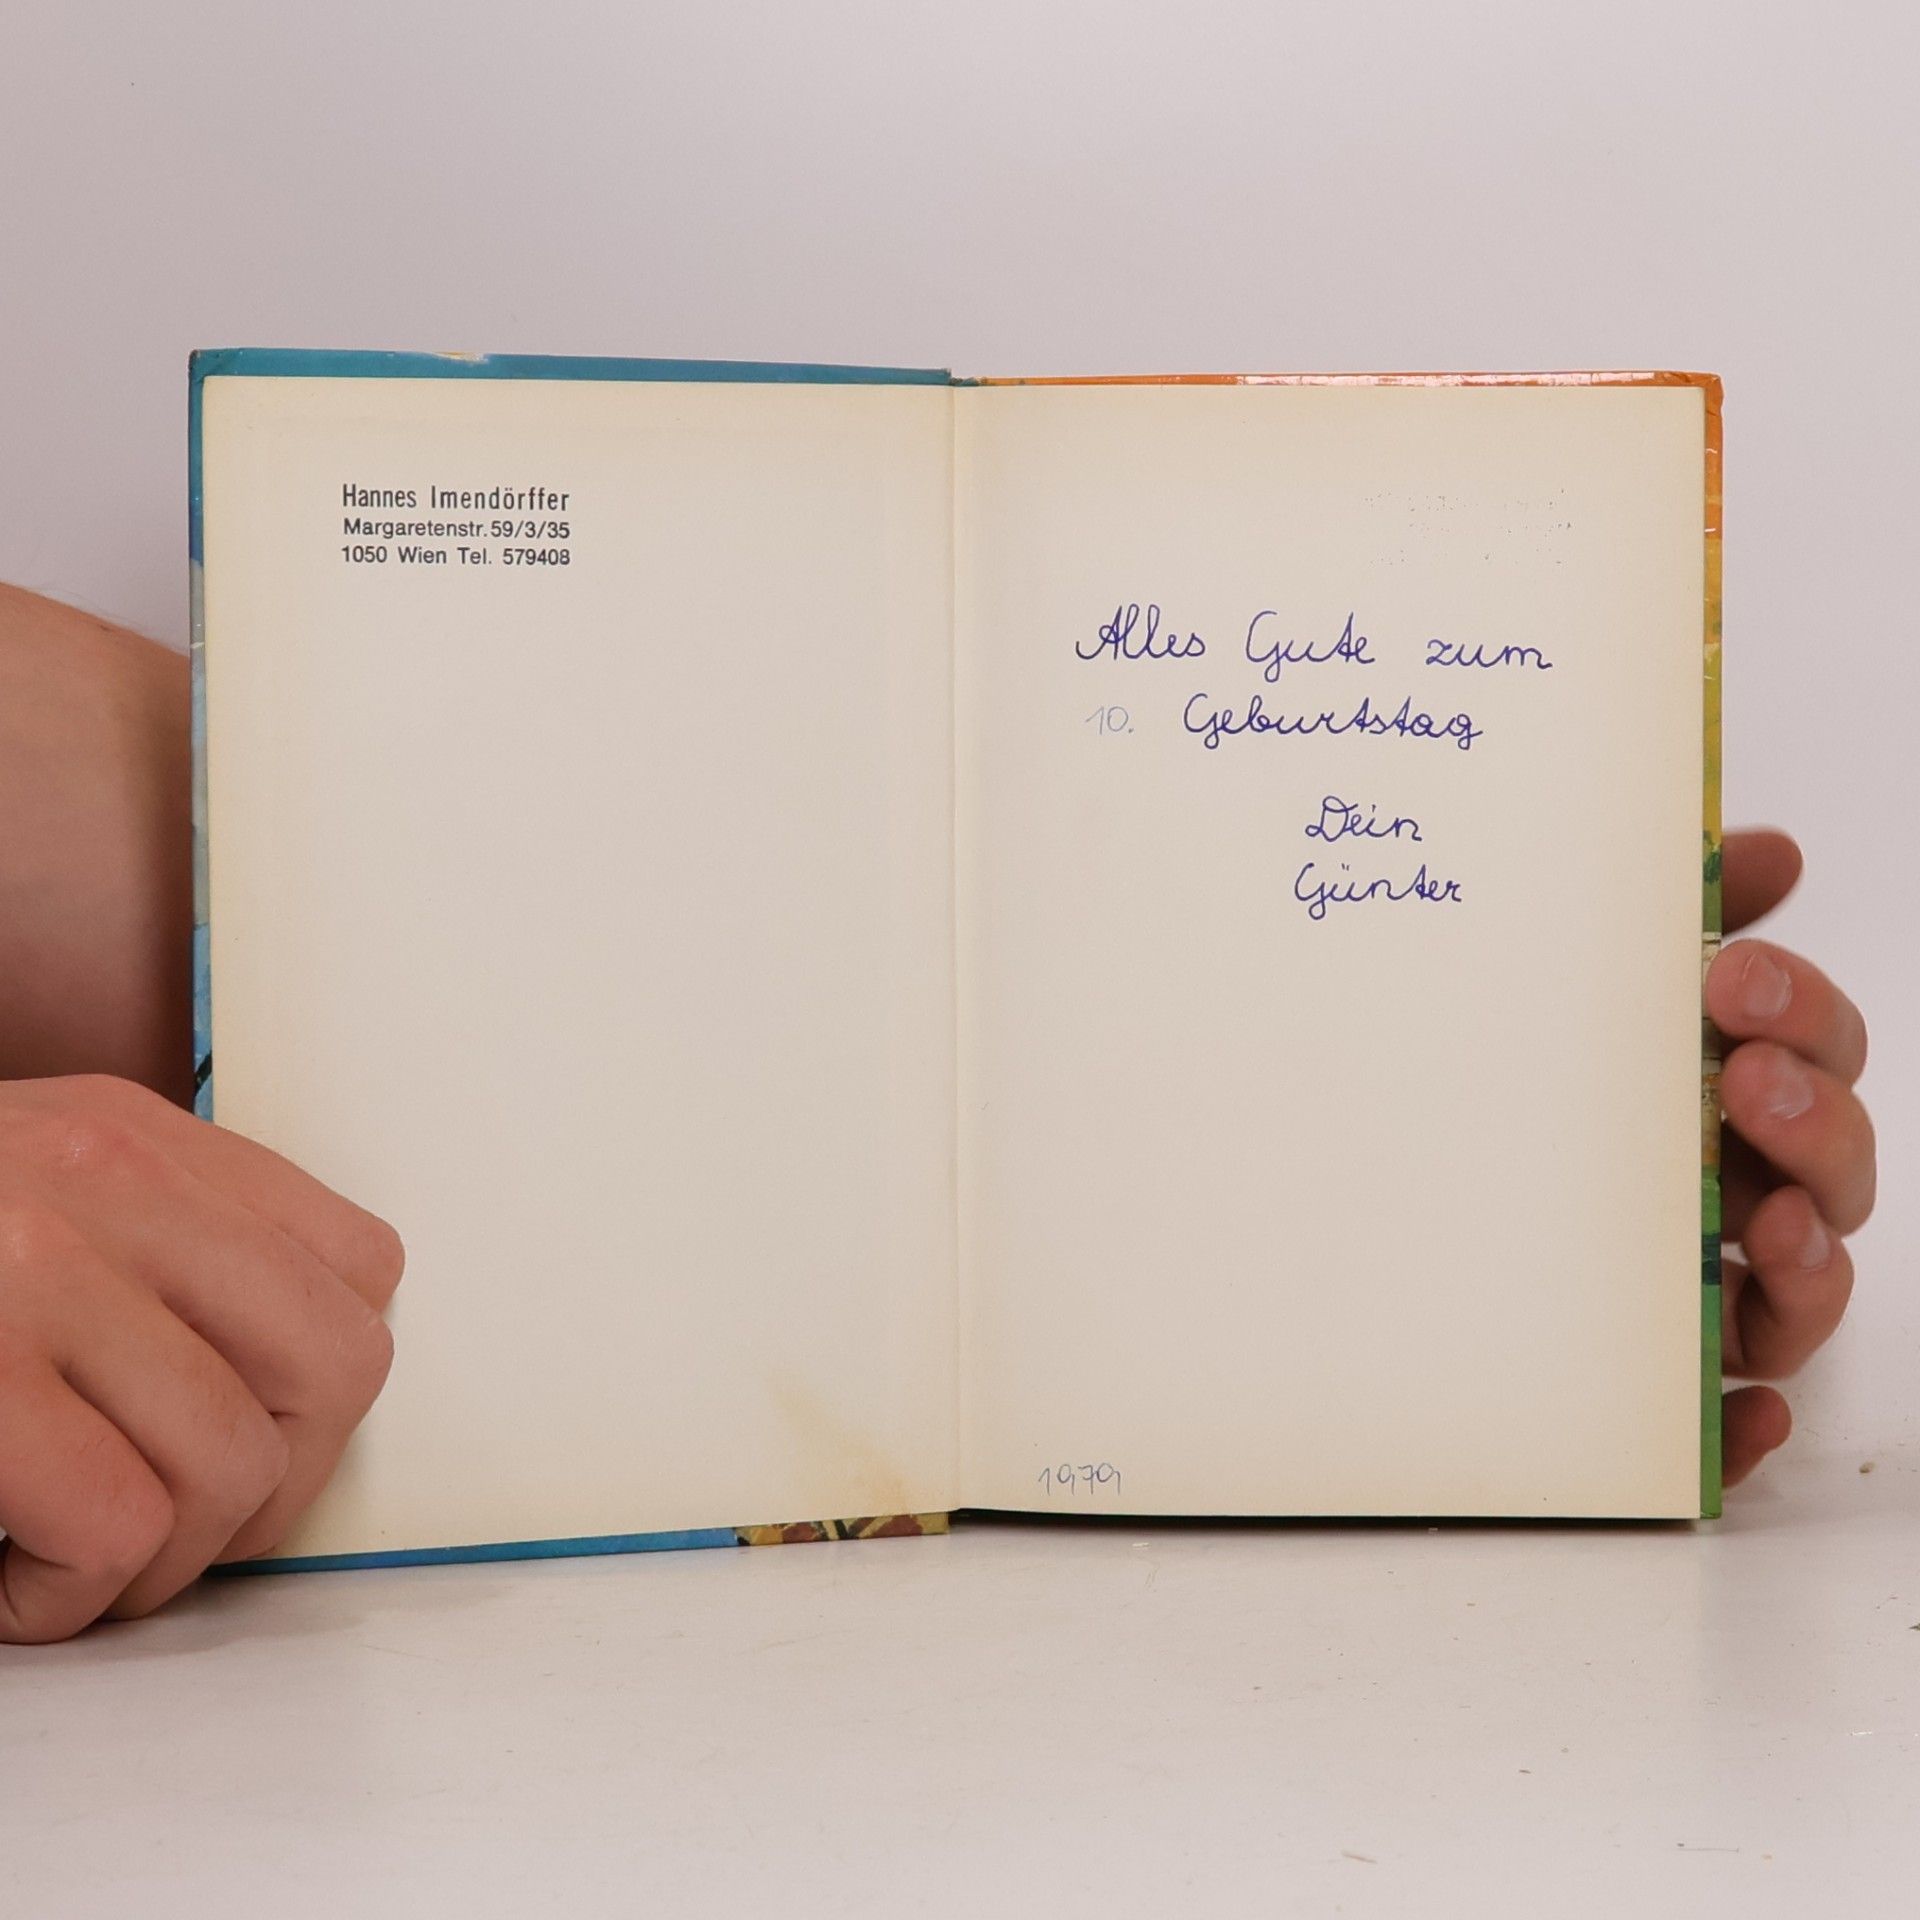 Hannes Imendörffer
Margaretenstr. 59/3/35
1050 Wien Tel. 579408
Alles Gute zum
10. Geburtstag
Dein
Günter
1979